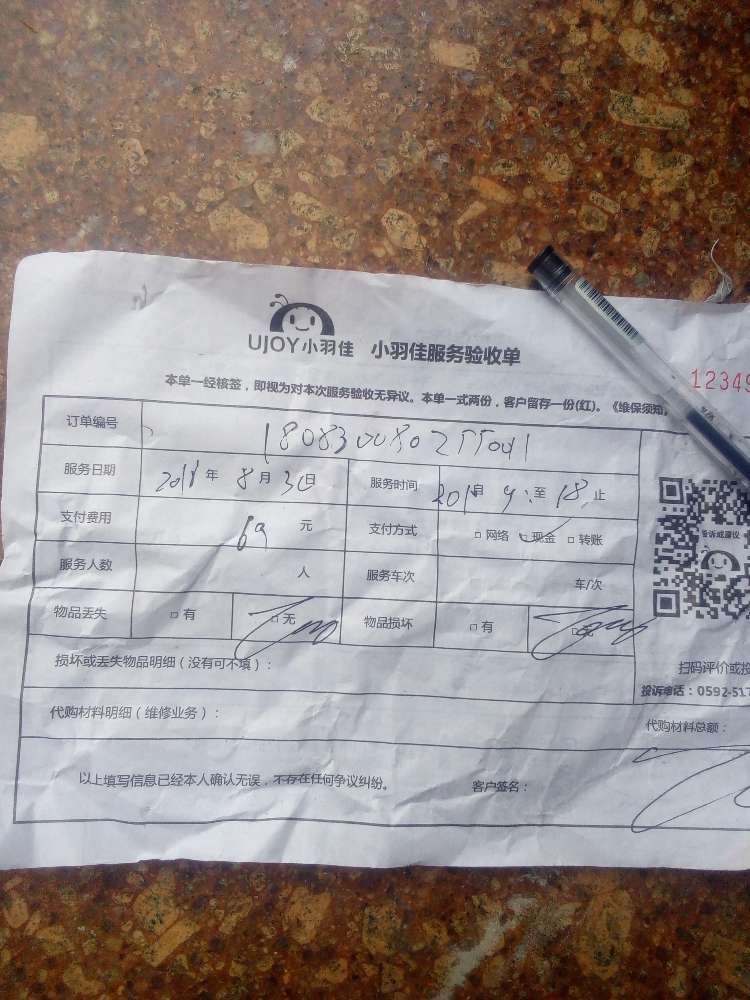 UJOY小羽佳 小羽佳服务验收单
12349
本单一经核签，即视为对本次服务验收无异议。本单一式两份，客户留存一份(红)。《维保须知
订单编号
服务日期 2018 年 8 月 30 日 服务时间 自 9: 至 18 止
支付费用 69 元 支付方式 □ 网络 □ 现金 □ 转账
服务人数 人 服务车次 车/次
投诉或建议
物品丢失 □ 有 □ 无 物品损坏 □ 有 □
损坏或丢失物品明细（没有可不填）：
扫码评价或投
投诉电话：0592-517
代购材料明细（维修业务）：
代购材料总额：
以上填写信息已经本人确认无误，不存在任何争议纠纷。 客户签名：